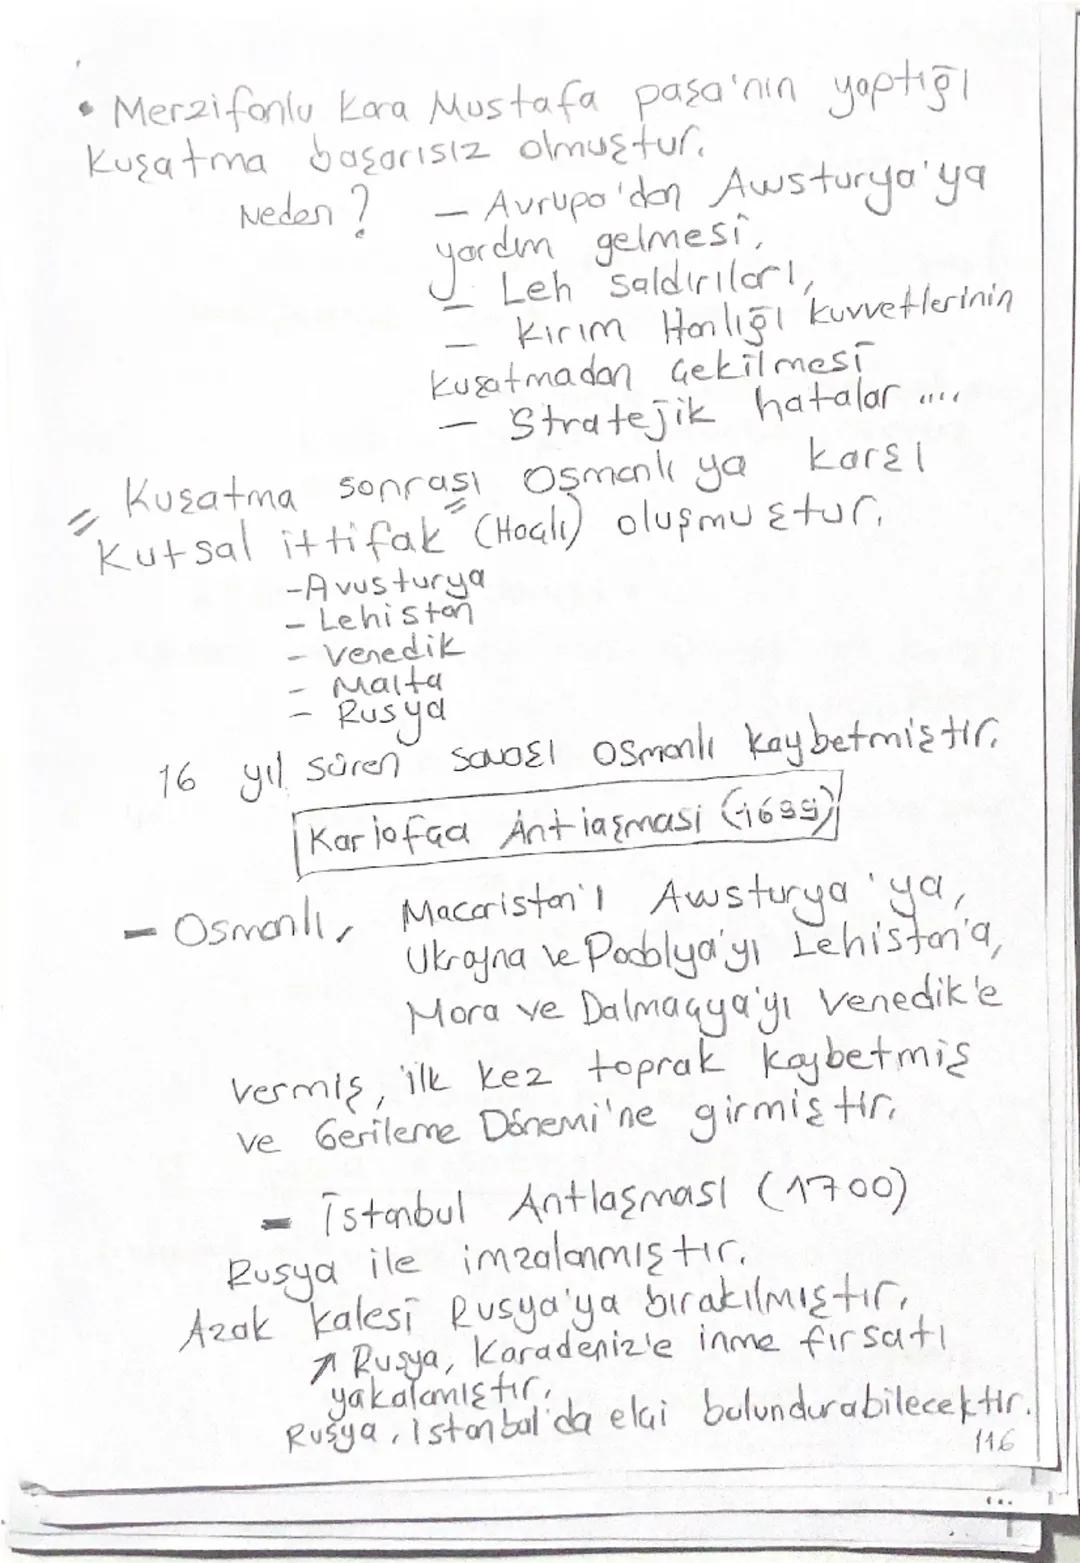 • Merzifonlu Kara Mustafa paşa'nın yaptığı
Kuşatma başarısız olmuştur.
Neden? – Avrupa'dan Avusturya'ya
yardım gelmesi,
– Leh saldırıları,
– Kırım Hanlığı kuvvetlerinin
kuşatmadan çekilmesi
– Stratejik hatalar ....
Kuşatma sonrası Osmanlı ya karşı
"Kutsal ittifak" (Haçlı) oluşmuştur.
- Avusturya
- Lehistan
- Venedik
- Malta
- Rusya
16 yıl süren savaşı Osmanlı kaybetmiştir.
Karlofça Antlaşması (1699)
– Osmanlı, Macaristan'ı Avusturya'ya,
Ukrayna ve Podolya'yı Lehistan'a,
Mora ve Dalmaçya'yı Venedik'e
vermiş, ilk kez toprak kaybetmiş
ve Gerileme Dönemi'ne girmiştir.
– İstanbul Antlaşması (1700)
Rusya ile imzalanmıştır.
Azak kalesi Rusya'ya bırakılmıştır.
↗ Rusya, Karadeniz'e inme fırsatı
yakalamıştır.
Rusya, İstanbul'da elçi bulundurabilecektir.
116